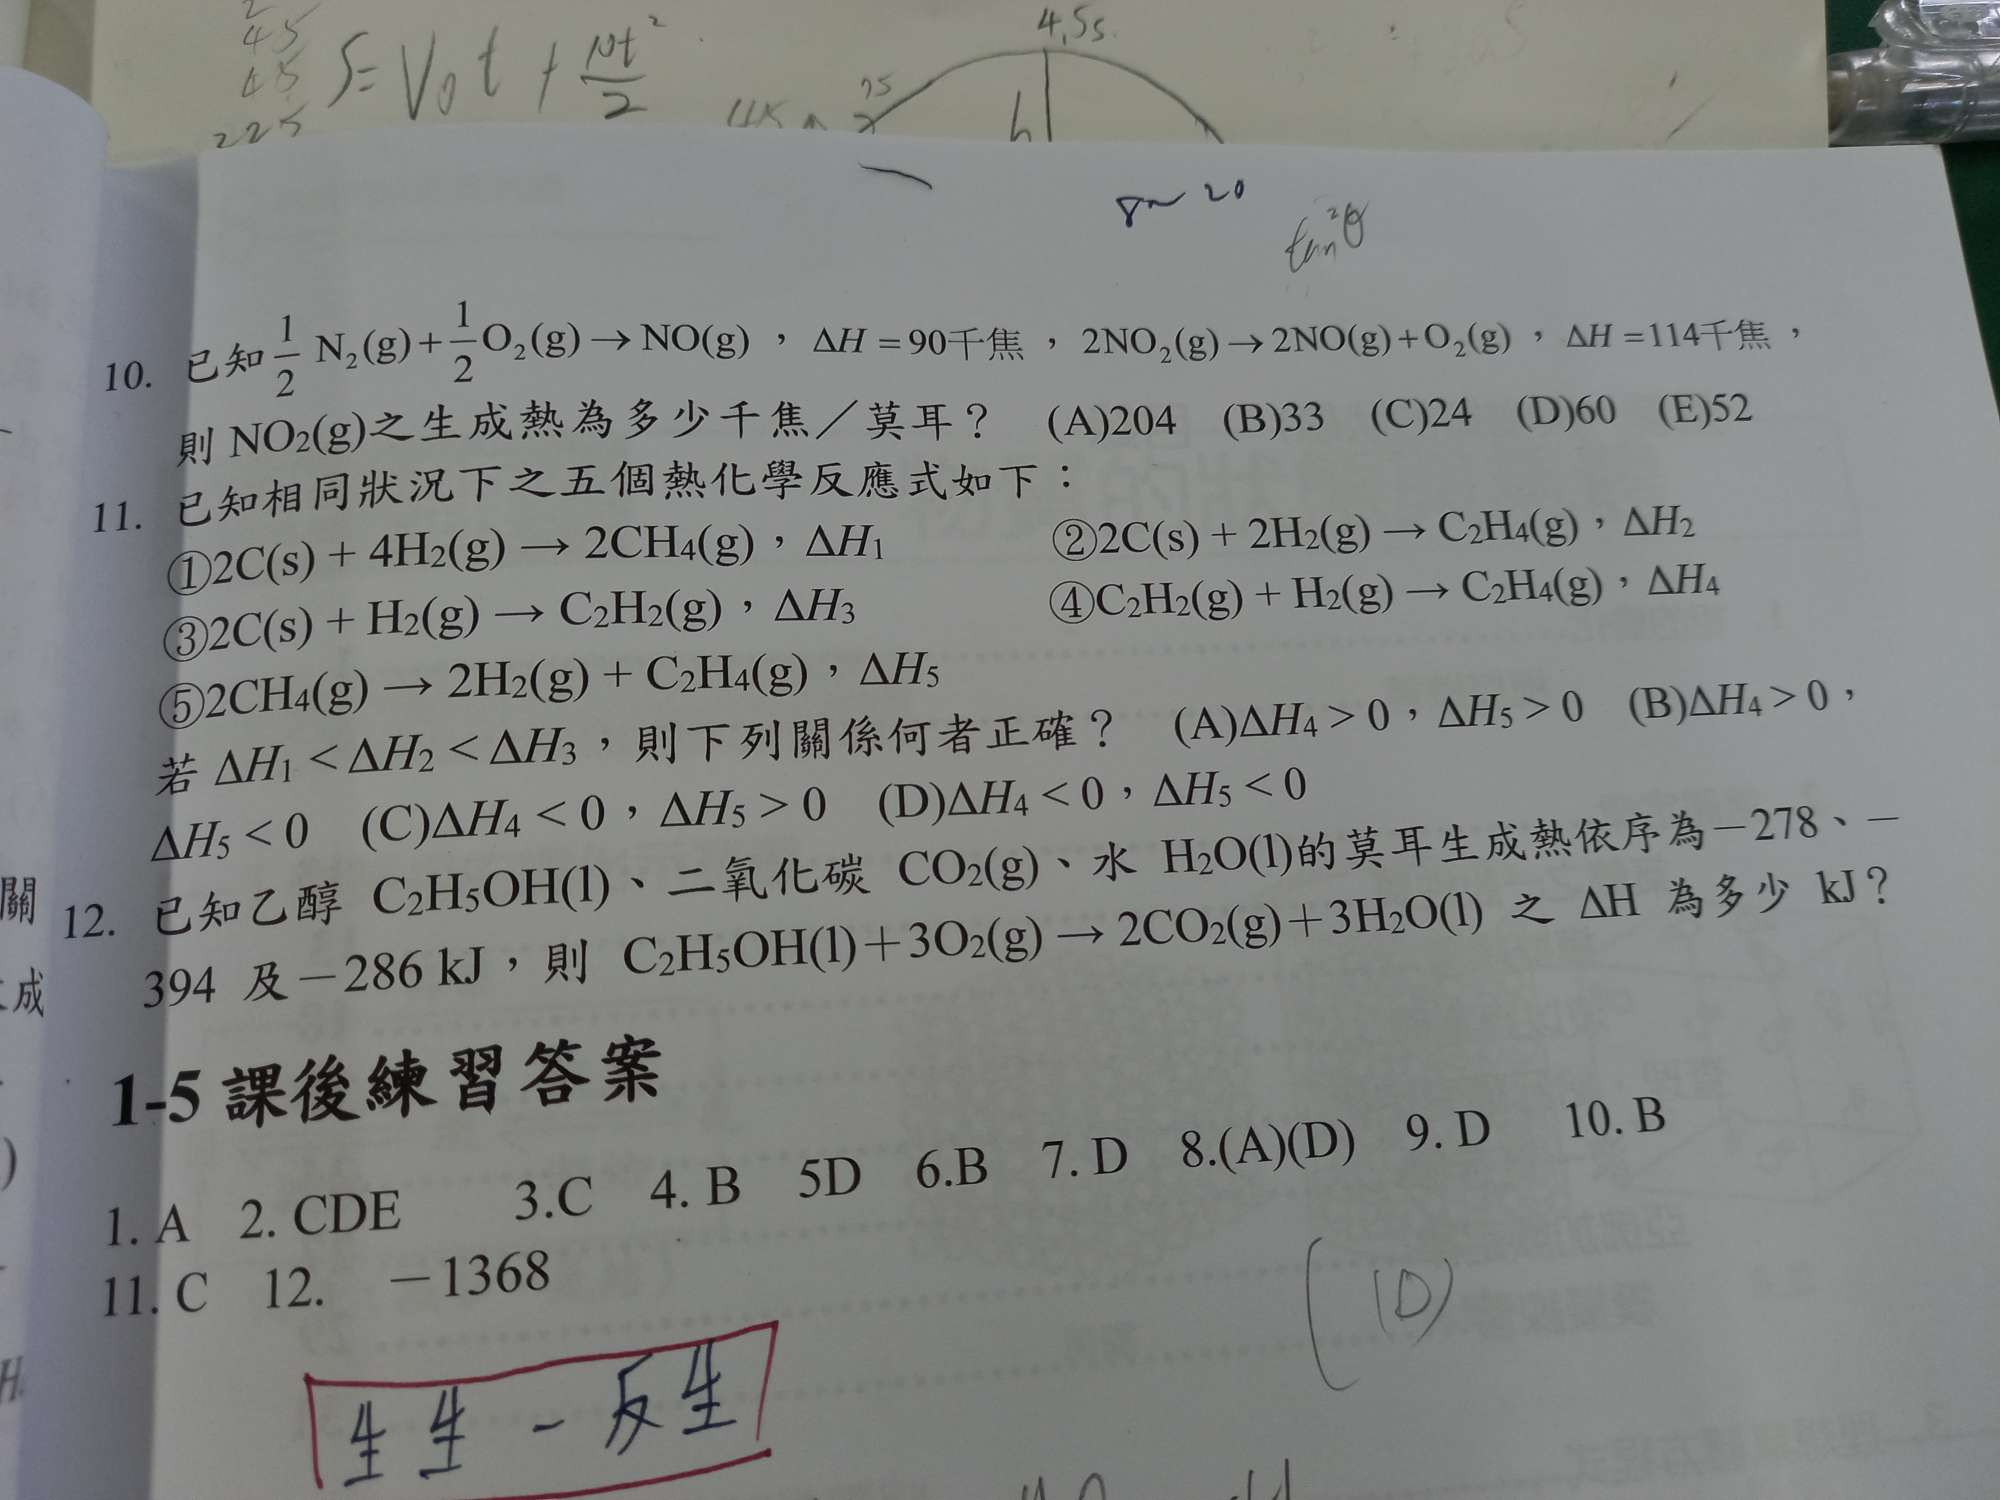 45
45
225
S = V₀t + 10t²/2
4.5s
h
20
tan²θ
10. 已知 1/2 N₂(g)+1/2 O₂(g)→NO(g),ΔH=90千焦,2NO₂(g)→2NO(g)+O₂(g),ΔH=114千焦,
則 NO₂(g)之生成熱為多少千焦/莫耳? (A)204 (B)33 (C)24 (D)60 (E)52
11. 已知相同狀況下之五個熱化學反應式如下:
①2C(s) + 4H₂(g) → 2CH₄(g),ΔH₁ ②2C(s) + 2H₂(g) → C₂H₄(g),ΔH₂
③2C(s) + H₂(g) → C₂H₂(g),ΔH₃ ④C₂H₂(g) + H₂(g) → C₂H₄(g),ΔH₄
⑤2CH₄(g) → 2H₂(g) + C₂H₄(g),ΔH₅
若 ΔH₁ < ΔH₂ < ΔH₃,則下列關係何者正確? (A)ΔH₄ > 0,ΔH₅ > 0 (B)ΔH₄ > 0,
ΔH₅ < 0 (C)ΔH₄ < 0,ΔH₅ > 0 (D)ΔH₄ < 0,ΔH₅ < 0
12. 已知乙醇 C₂H₅OH(l)、二氧化碳 CO₂(g)、水 H₂O(l)的莫耳生成熱依序為-278、-
394 及-286 kJ,則 C₂H₅OH(l)+3O₂(g)→2CO₂(g)+3H₂O(l) 之 ΔH 為多少 kJ?
1-5 課後練習答案
1. A 2. CDE 3.C 4. B 5D 6.B 7. D 8.(A)(D) 9. D 10. B
11. C 12. -1368
(10)
生生-反生
關
成